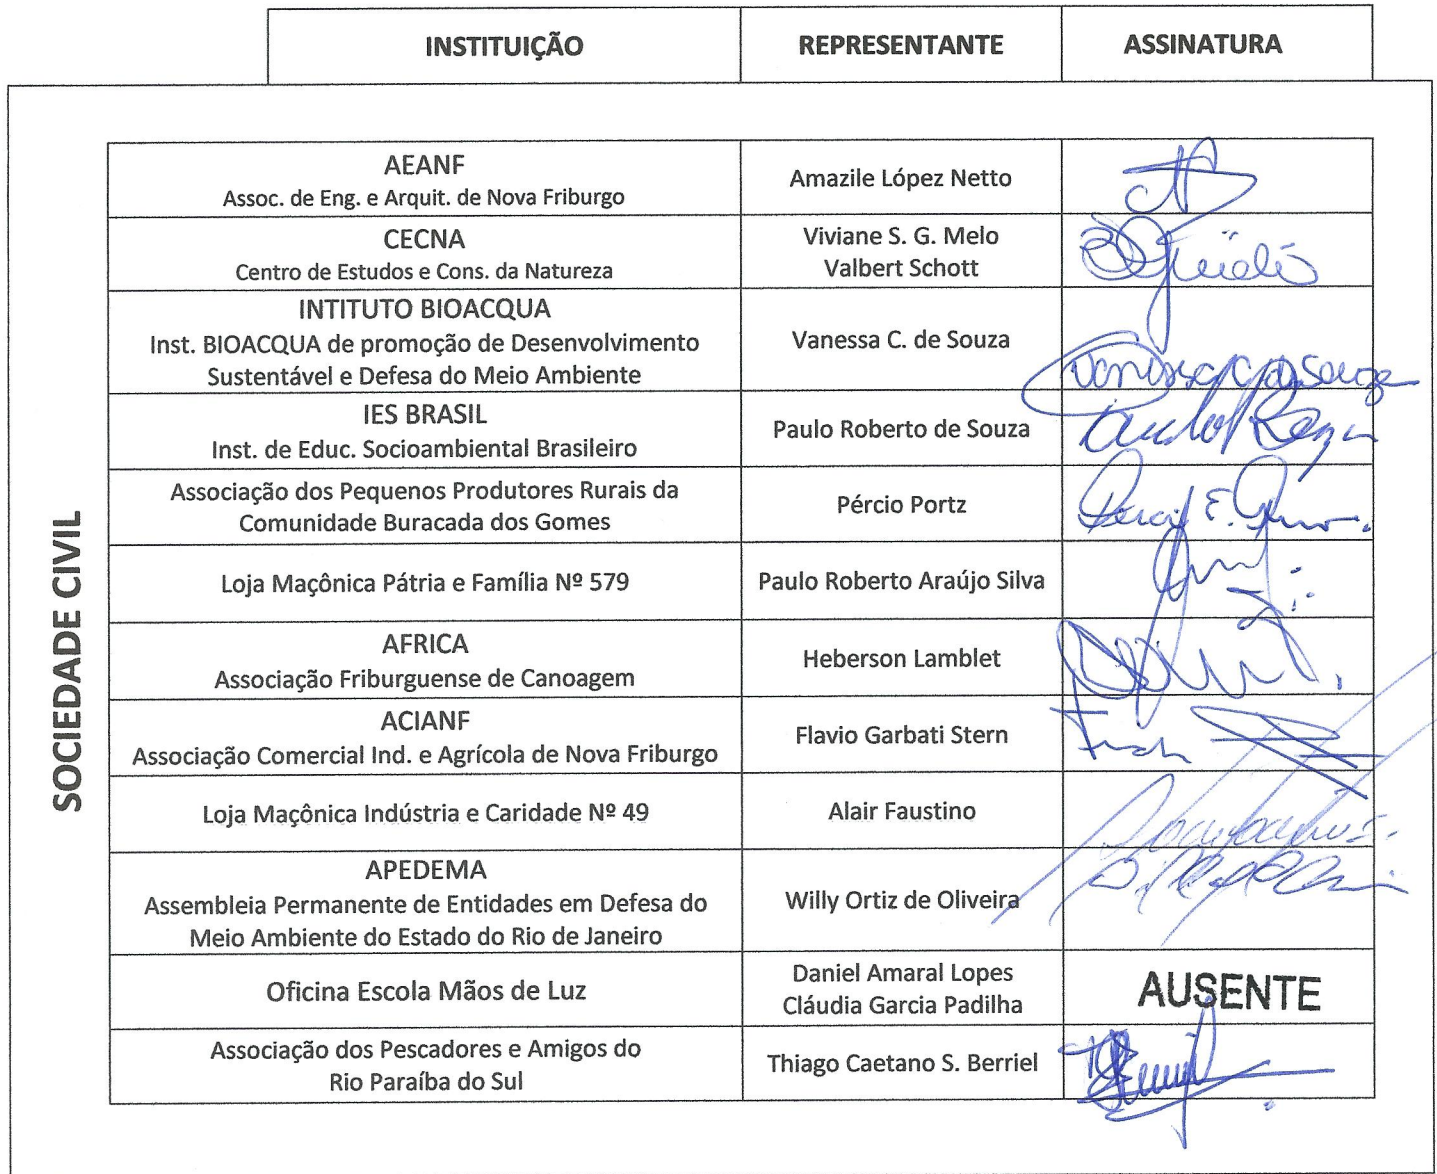 INSTITUIÇÃO REPRESENTANTE ASSINATURA
SOCIEDADE CIVIL
AEANF
Assoc. de Eng. e Arquit. de Nova Friburgo
Amazile López Netto
CECNA
Centro de Estudos e Cons. da Natureza
Viviane S. G. Melo
Valbert Schott
INTITUTO BIOACQUA
Inst. BIOACQUA de promoção de Desenvolvimento
Sustentável e Defesa do Meio Ambiente
Vanessa C. de Souza
Vanessa C de Souza
IES BRASIL
Inst. de Educ. Socioambiental Brasileiro
Paulo Roberto de Souza
Associação dos Pequenos Produtores Rurais da
Comunidade Buracada dos Gomes
Pércio Portz
Loja Maçônica Pátria e Família Nº 579
Paulo Roberto Araújo Silva
AFRICA
Associação Friburguense de Canoagem
Heberson Lamblet
ACIANF
Associação Comercial Ind. e Agrícola de Nova Friburgo
Flavio Garbati Stern
Loja Maçônica Indústria e Caridade Nº 49
Alair Faustino
APEDEMA
Assembleia Permanente de Entidades em Defesa do
Meio Ambiente do Estado do Rio de Janeiro
Willy Ortiz de Oliveira
Oficina Escola Mãos de Luz
Daniel Amaral Lopes
Cláudia Garcia Padilha
AUSENTE
Associação dos Pescadores e Amigos do
Rio Paraíba do Sul
Thiago Caetano S. Berriel